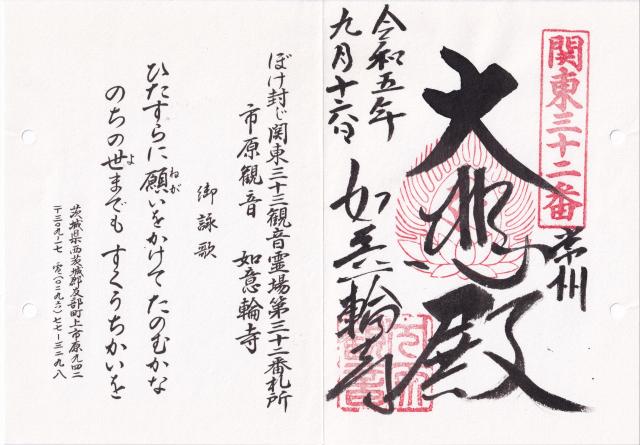 関東三十二番
常州
大悲殿
如意輪寺
令和五年
九月十六日
ぼけ封じ関東三十三観音霊場第三十二番札所
市原観音　如意輪寺
御詠歌
ひたすらに願いをかけてたのむかな
ねが
のちの世までも　すくうちかいを
よ
茨城県西茨城郡友部町上市原九四二
〒三〇九-一七　電(〇二九六)七七-三二九八